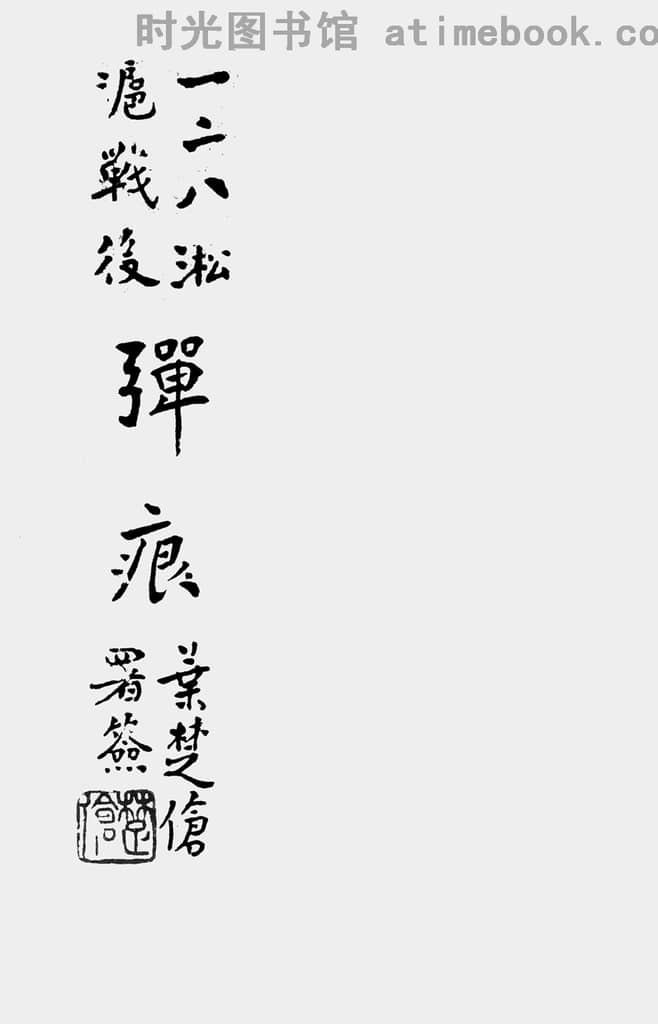 时光图书馆 atimebook.co
一二八淞
滬戰後
彈痕
葉楚傖
署簽
楚傖